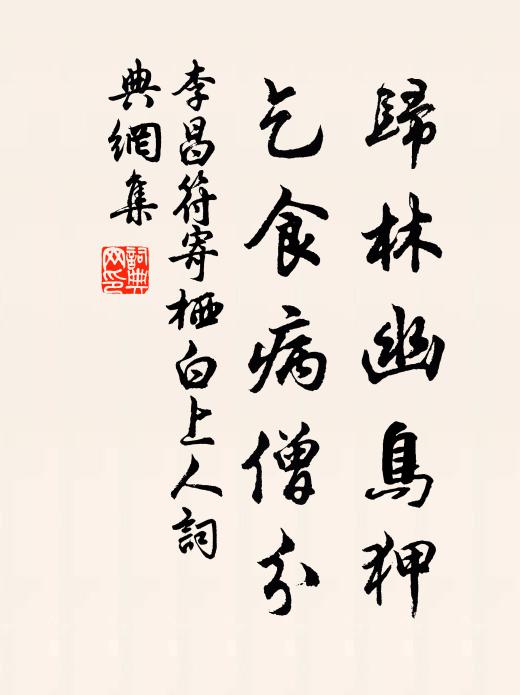 歸林幽鳥狎
乞食病僧分
李昌符寄栖白上人詞
典網集
詞典
网印